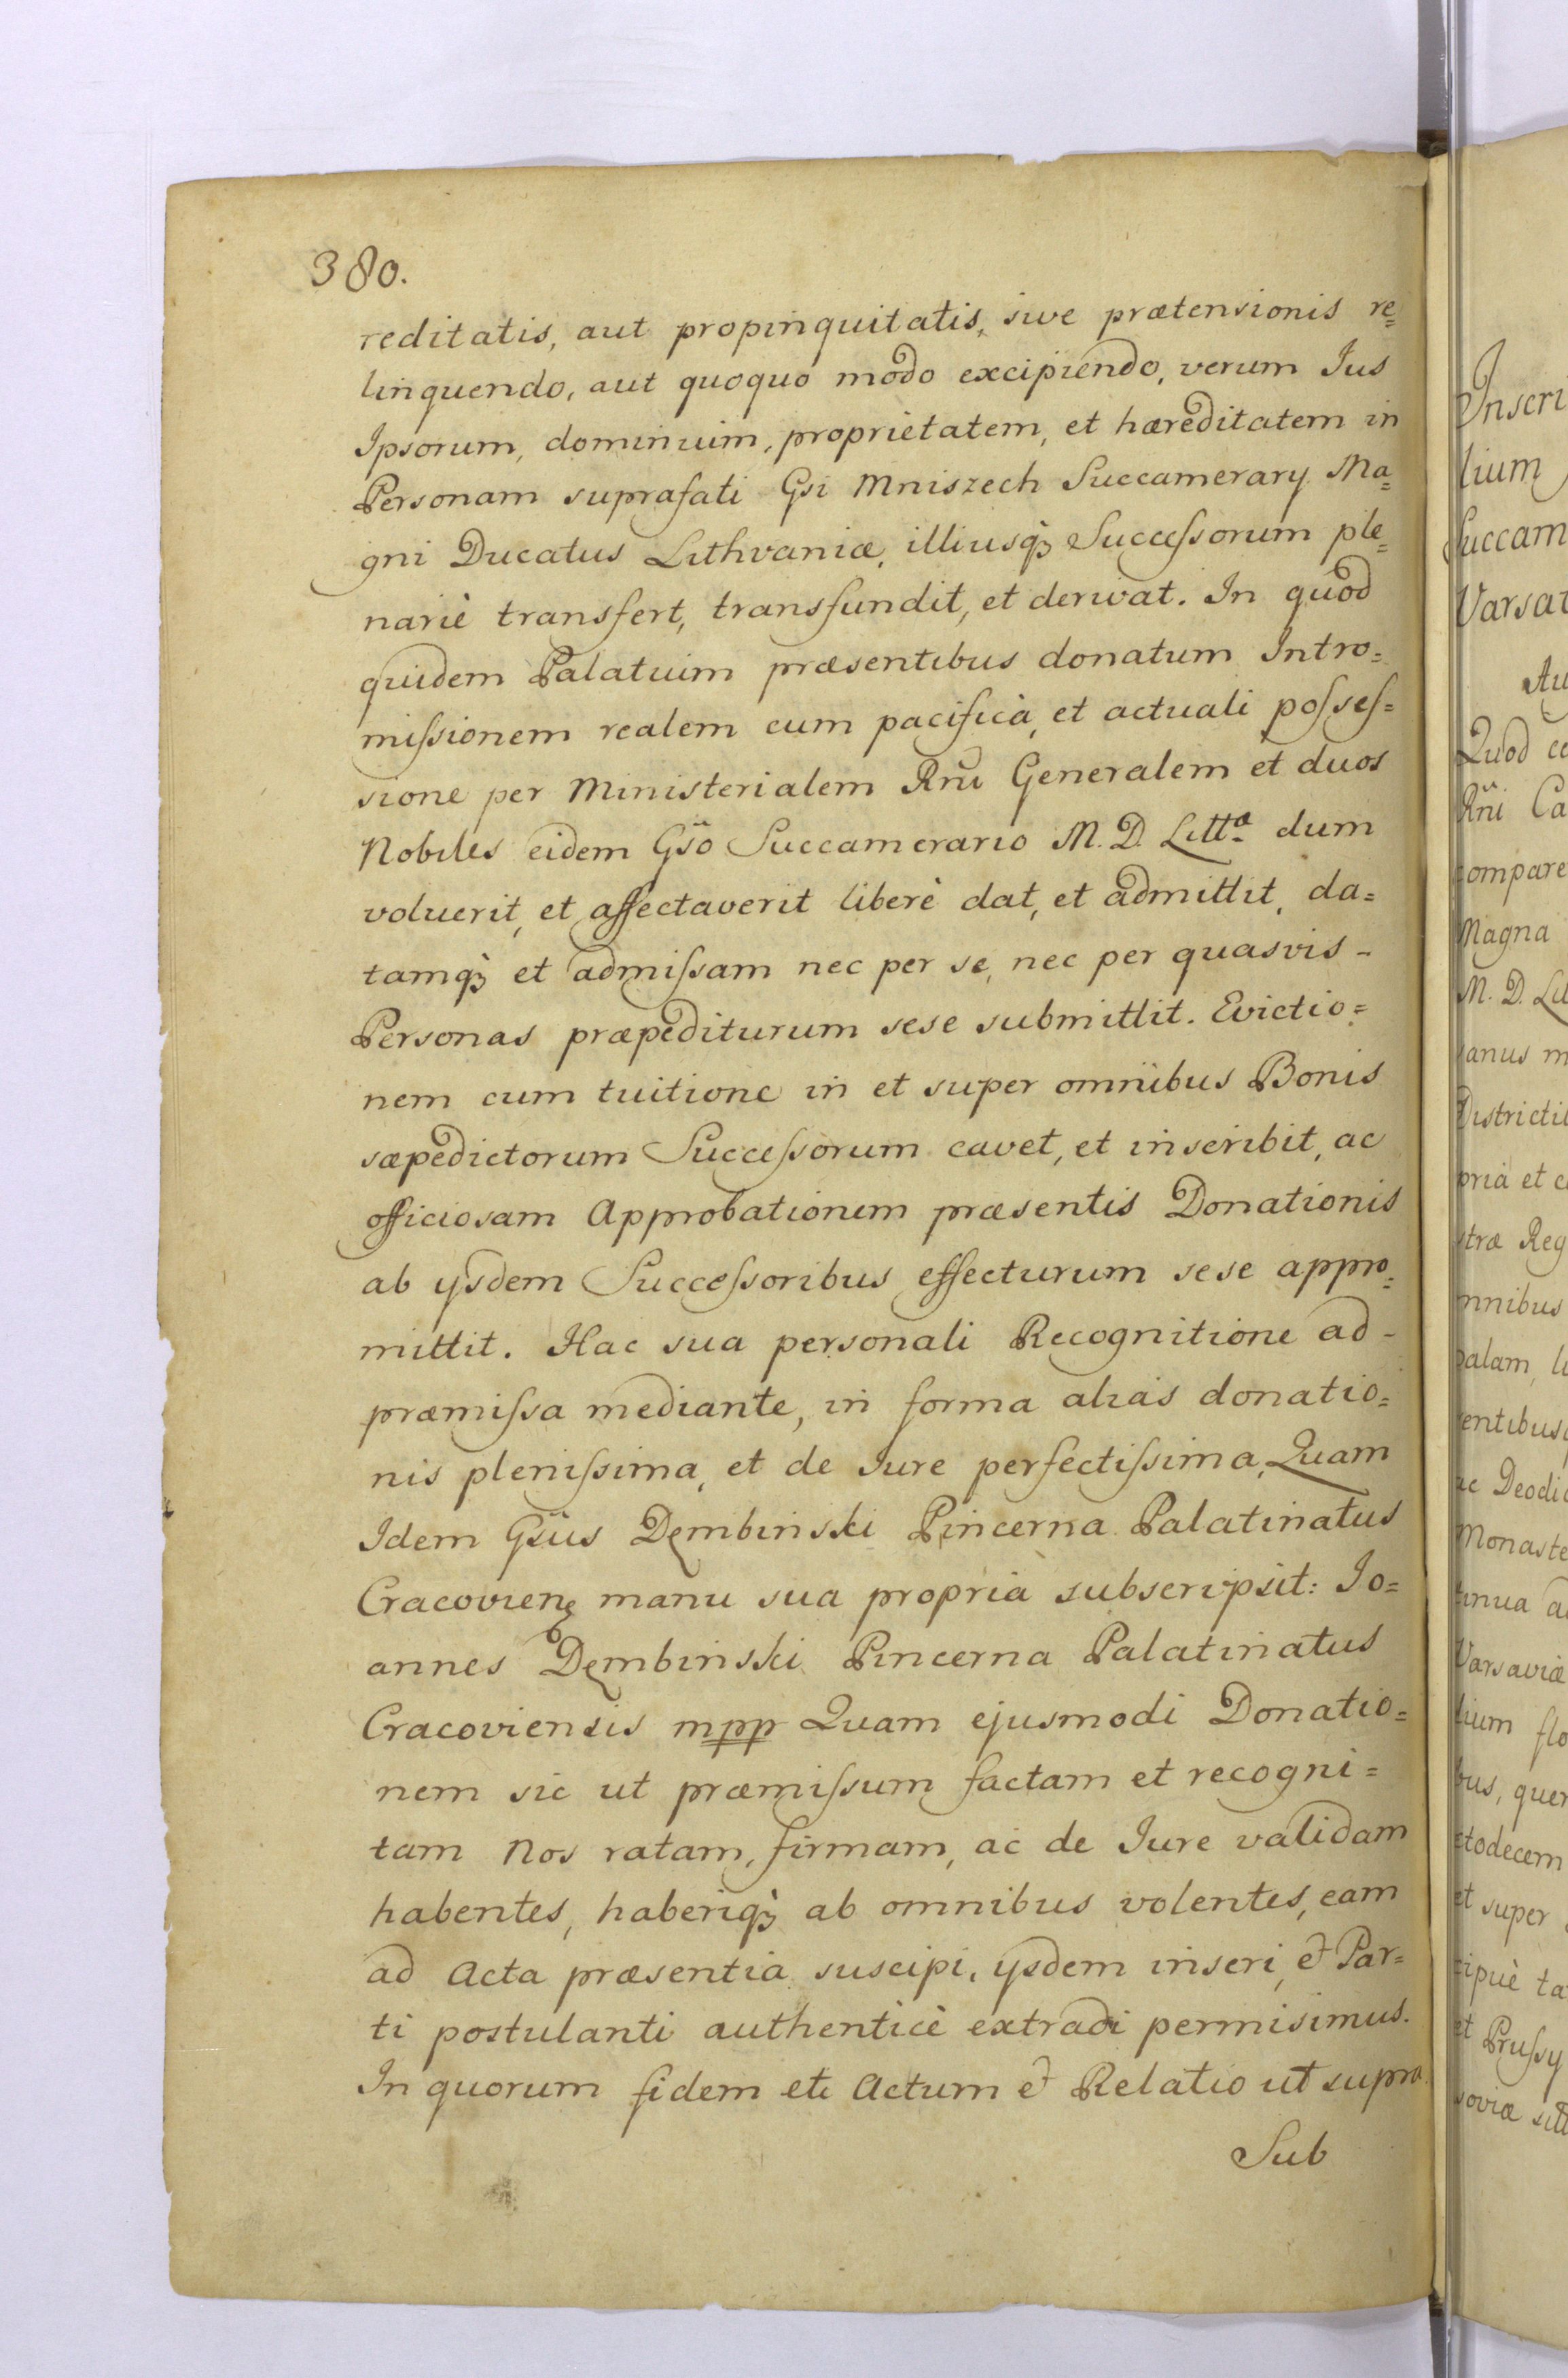 380.
reditatis, aut propinquitatis, sive prætensionis re=
linquendo, aut quoquo modo excipiendo, verum Jus
Ipsorum, dominium, proprietatem, et hæreditatem in
Personam suprafati Gsi Mniszech Succamerary Ma=
gni Ducatus Lithvaniæ, illiusqꝫ Succeſsorum ple=
nariè transfert, transfundit, et derivat. In quod
quidem Palatium præsentibus donatum Intro=
miſsionem realem cum pacificà, et actuali poſseſ=
sione per Ministerialem Rñi Generalem et duos
Nobiles eidem Gs̈o Succamerario M. D. Littæ dum
voluerit, et affectaverit liberè dat, et admittit, da=
tamqꝫ et admiſsam nec per se, nec per quasvis -
Personas præpediturum sese submittit. Evictio=
nem cum tuitione in et super omnibus Bonis
sæpedictorum Succeſsorum cavet, et inscribit, ac
officiosam Approbationem præsentis Donationis
ab ysdem Succeſsoribus effecturum sese appro=
mittit. Hac sua personali Recognitione ad -
præmiſsa mediante, in forma alias donatio=
nis pleniſsima, et de Iure perfectiſsima, Quam
Idem Gs̈us Dęmbinski Pincerna Palatinatus
Cracovienę manu sua propria subscripsit: Jo=
annes Dęmbinski Pincerna Palatinatus
Cracoviensis mpp Quam ejusmodi Donatio=
nem sic ut præmiſsum factam et recogni=
tam Nos ratam, firmam, ac de Iure validam
habentes, haberiqꝫ ab omnibus volentes, eam
ad Acta præsentia suscipi, ysdem inseri, & Par=
ti postulanti authenticè extradi permisimus.
In quorum fidem etc Actum & Relatio ut supra.
Sub
Inscri
lium
Succam
Varsav
Au
Quod
Rñi Ca
compare
Magna
M. D. Lit
anus m
Districti
pria et
stræ Reg
mnibus
palam, li
entibus
ac Deodi
Monaste
tinua a
Varsaviæ
lium flo
bus, quer
ctodecem
et super
cipuè ta
et Pruſsy
soviæ